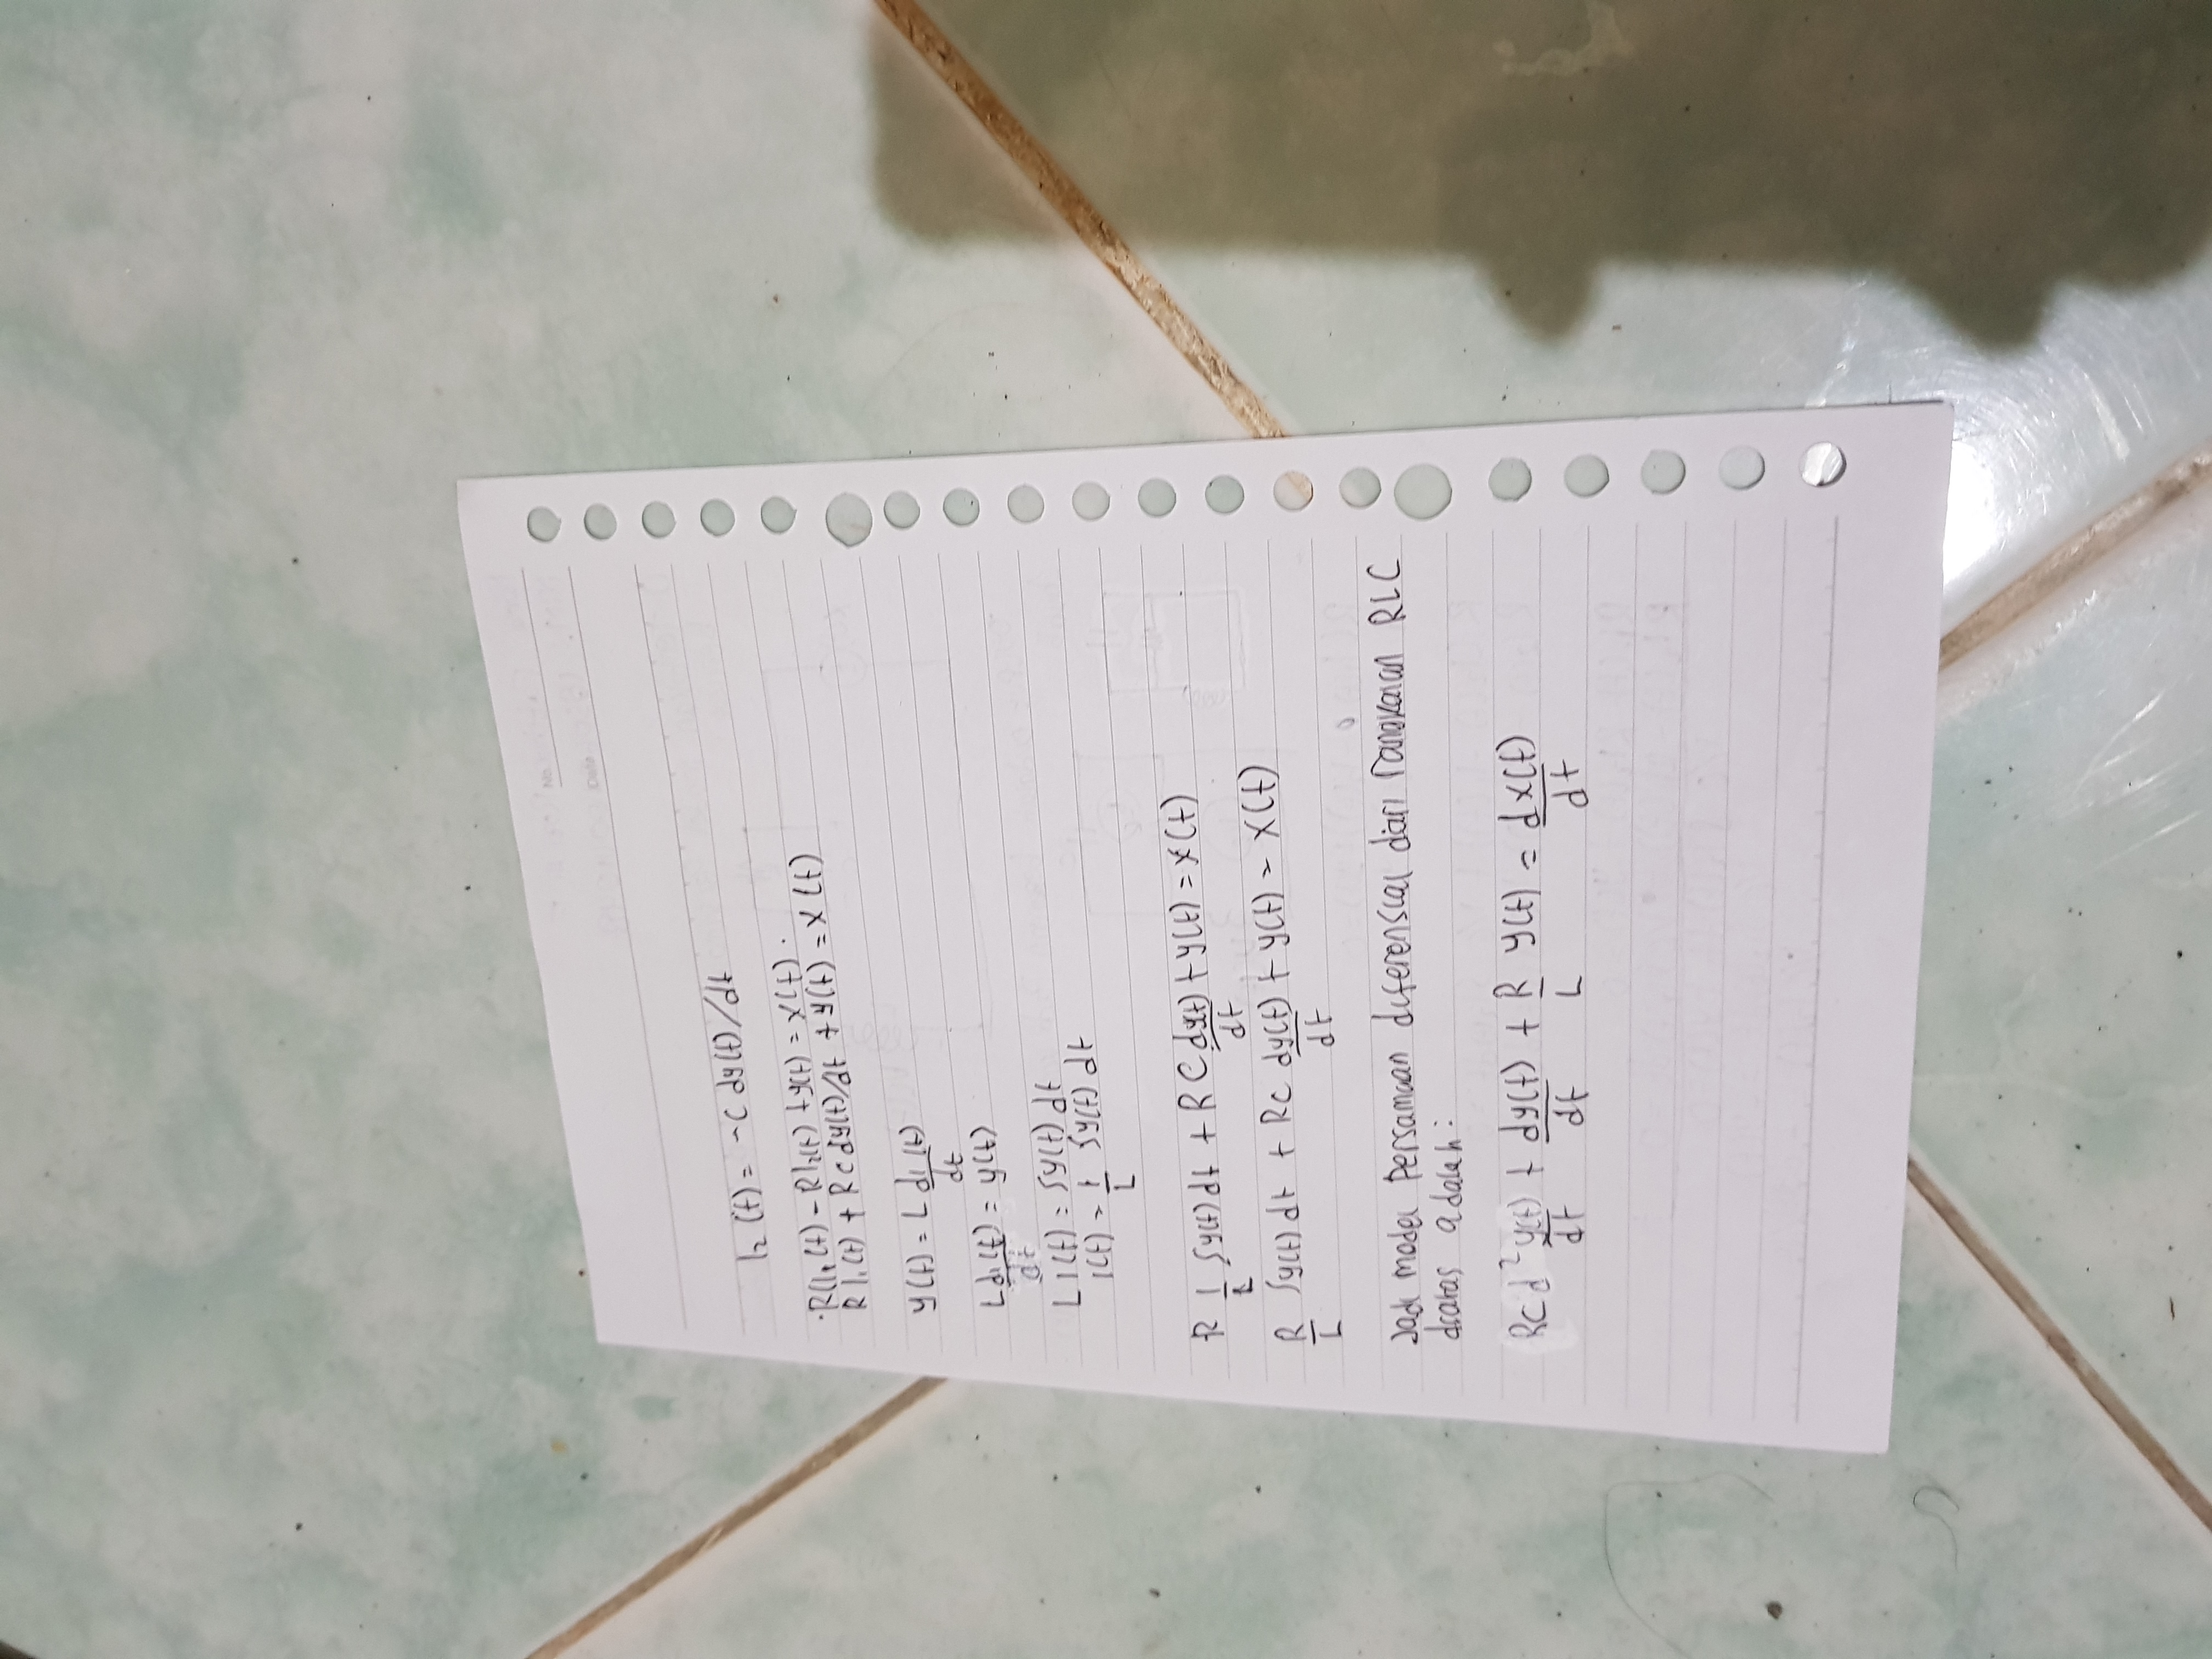 No.
Date
I₂ (t) = -C dy(t)/dt
R(I₁(t) - RI₂(t) + y(t) = x(t).
R I₁(t) + RC dy(t)/dt + y(t) = x(t)
y(t) = L dI(t)/dt
L dI(t)/dt = y(t)
L I(t) = ∫y(t) dt
I(t) = 1/L ∫y(t) dt
R 1/L ∫y(t) dt + RC dy(t)/dt + y(t) = x(t)
R/L ∫y(t) dt + RC dy(t)/dt + y(t) = x(t)
Jadi model Persamaan diferensial dari rangkaian RLC
diatas adalah:
RC d² y(t)/dt + dy(t)/dt + R/L y(t) = dx(t)/dt